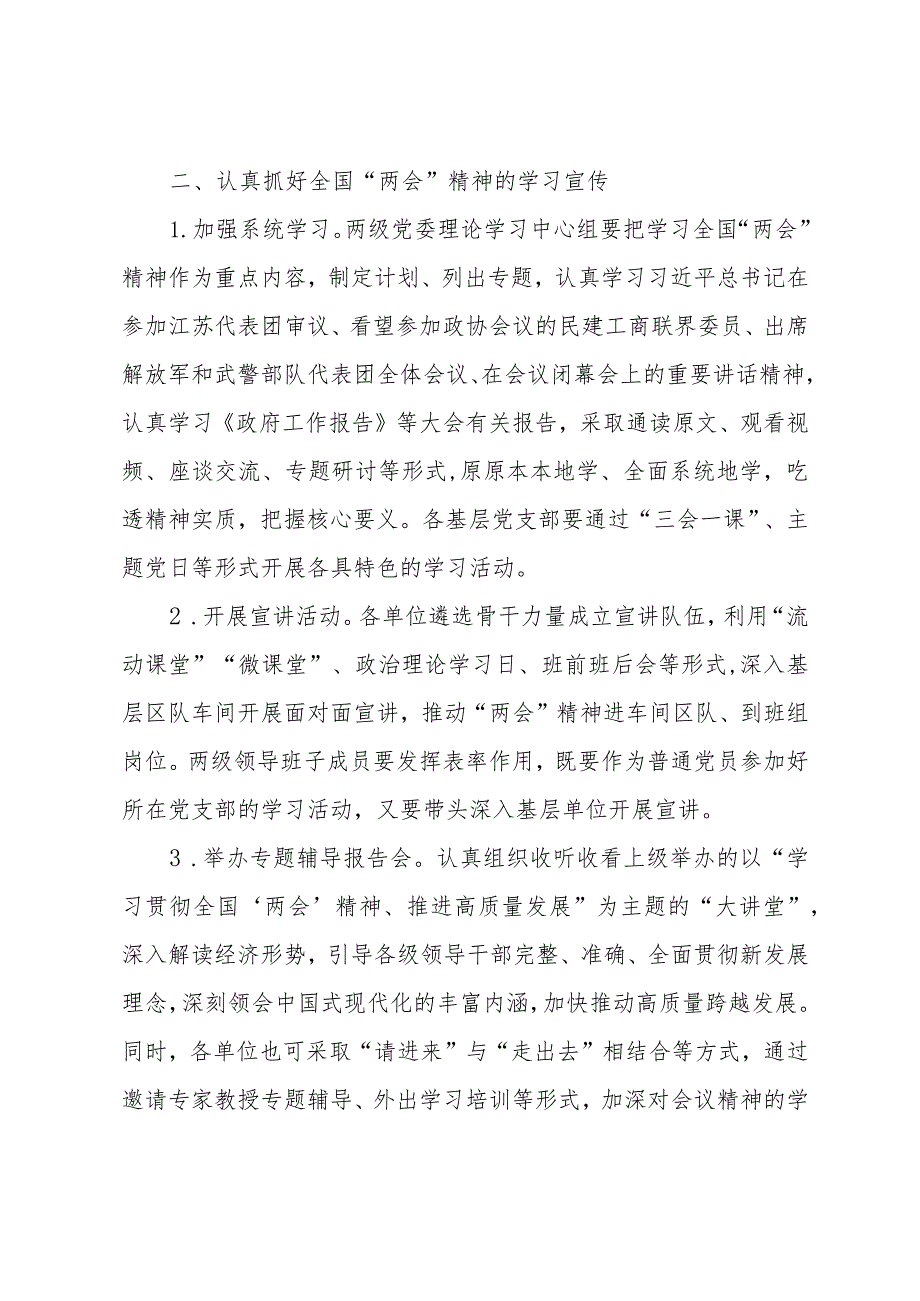 二、认真抓好全国“两会”精神的学习宣传
1.加强系统学习。两级党委理论学习中心组要把学习全国“两会”
精神作为重点内容，制定计划、列出专题，认真学习习近平总书记在
参加江苏代表团审议、看望参加政协会议的民建工商联界委员、出席
解放军和武警部队代表团全体会议、在会议闭幕会上的重要讲话精神，
认真学习《政府工作报告》等大会有关报告，采取通读原文、观看视
频、座谈交流、专题研讨等形式,原原本本地学、全面系统地学，吃
透精神实质，把握核心要义。各基层党支部要通过“三会一课”、主
题党日等形式开展各具特色的学习活动。
2 .开展宣讲活动。各单位遴选骨干力量成立宣讲队伍，利用“流
动课堂”“微课堂”、政治理论学习日、班前班后会等形式,深入基
层区队车间开展面对面宣讲，推动“两会”精神进车间区队、到班组
岗位。两级领导班子成员要发挥表率作用，既要作为普通党员参加好
所在党支部的学习活动，又要带头深入基层单位开展宣讲。
3 .举办专题辅导报告会。认真组织收听收看上级举办的以“学
习贯彻全国‘两会’精神、推进高质量发展”为主题的“大讲堂”，
深入解读经济形势，引导各级领导干部完整、准确、全面贯彻新发展
理念,深刻领会中国式现代化的丰富内涵,加快推动高质量跨越发展。
同时，各单位也可采取“请进来”与“走出去”相结合等方式，通过
邀请专家教授专题辅导、外出学习培训等形式，加深对会议精神的学